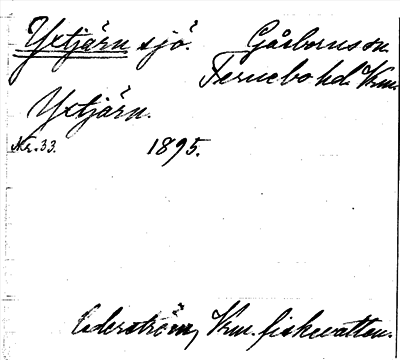 Yxtjärn sjö. Gåsborns sn.
Fernebo hd. Vrm.
Yxtjärn.
Nr. 33. 1895.
Cederström, Vrm. fiskevatten.